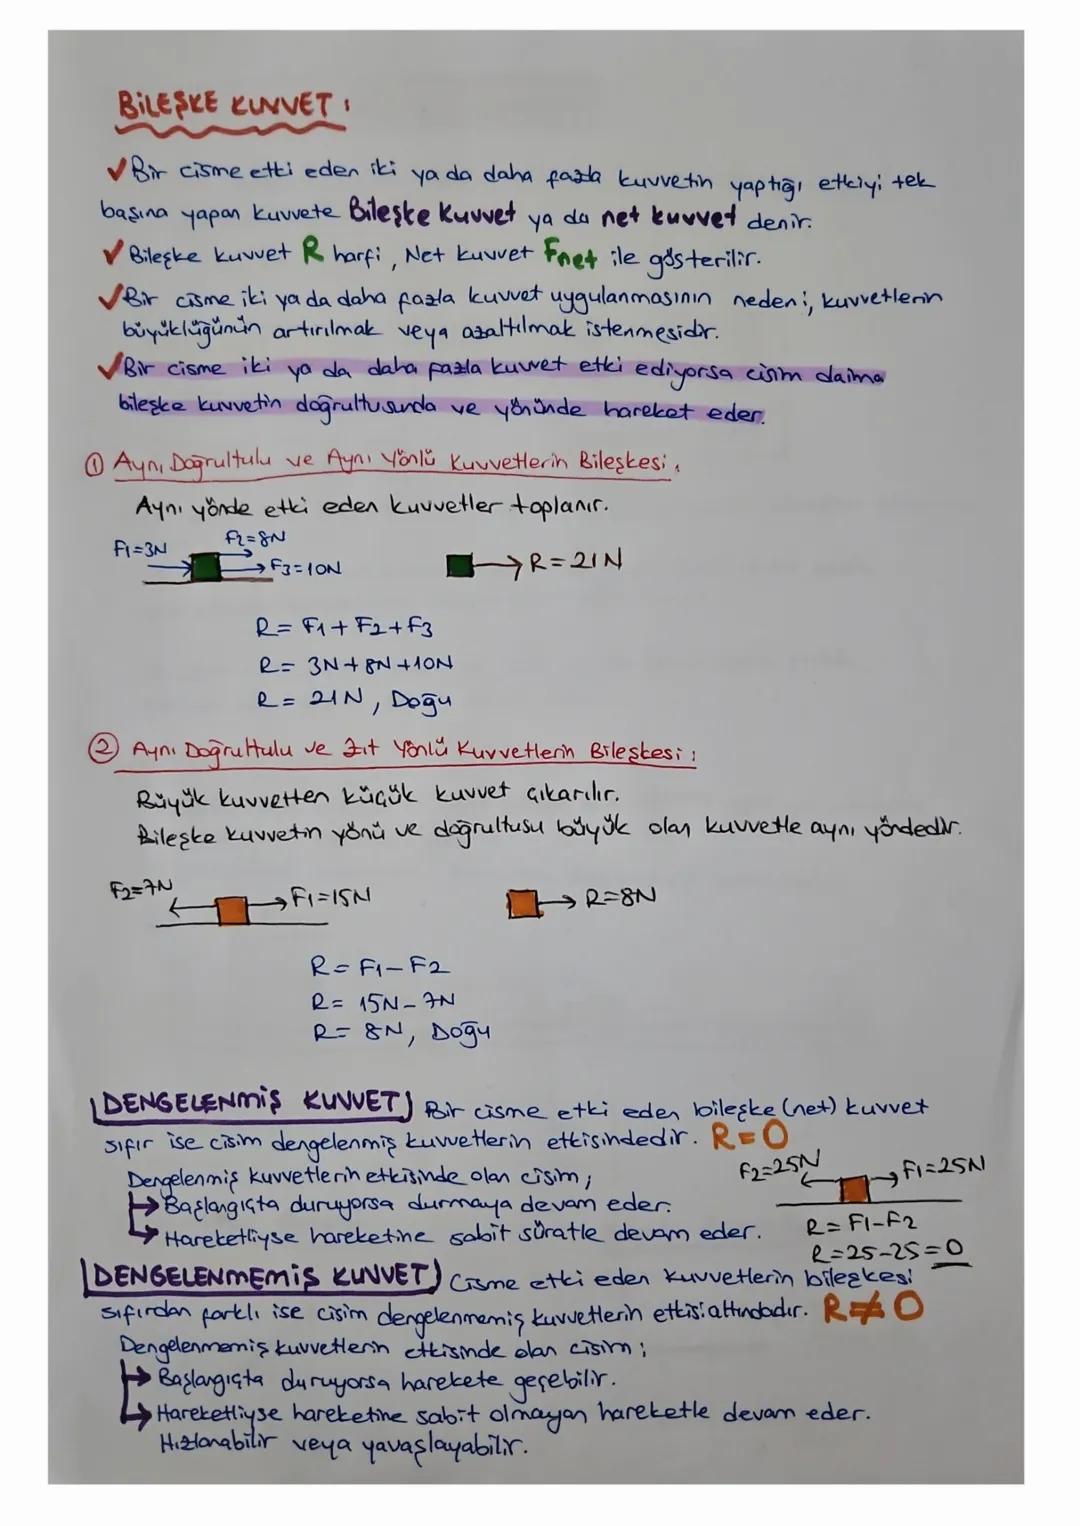 BİLEŞKE KUVVET :
✓Bir cisme etki eden iki ya da daha fazla kuvvetin yaptığı etkiyi tek
başına yapan kuvvete Bileşke Kuvvet ya da net kuvvet denir.
✓Bileşke kuvvet R harfi, Net kuvvet Fnet ile gösterilir.
✓Bir cisme iki ya da daha fazla kuvvet uygulanmasının nedeni, kuvvetlerin
büyüklüğünün artırılmak veya azaltılmak istenmesidir.
✓Bir cisme iki ya da daha fazla kuvvet etki ediyorsa cisim daima
bileşke kuvvetin doğrultusunda ve yönünde hareket eder.
① Aynı Doğrultulu ve Aynı Yönlü Kuvvetlerin Bileşkesi.
Aynı yönde etki eden kuvvetler toplanır.
F1=3N F2=8N
F3=10N R=21N
R= F1+F2+F3
R= 3N+8N+10N
R= 21N, Doğu
② Aynı Doğrultulu ve Zıt Yönlü Kuvvetlerin Bileşkesi :
Büyük kuvvetten küçük kuvvet çıkarılır.
Bileşke kuvvetin yönü ve doğrultusu büyük olan kuvvetle aynı yöndedir.
F2=7N F1=15N R=8N
R= F1-F2
R= 15N-7N
R= 8N, Doğu
DENGELENMİŞ KUVVET) Bir cisme etki eden bileşke (net) kuvvet
sıfır ise cisim dengelenmiş kuvvetlerin etkisindedir. R=0
Dengelenmiş kuvvetlerin etkisinde olan cisim;
→ Başlangıçta duruyorsa durmaya devam eder.
→ Hareketliyse hareketine sabit süratle devam eder.
F2=25N F1=25N
R= F1-F2
R=25-25=0
DENGELENMEMİŞ KUVVET) Cisme etki eden kuvvetlerin bileşkesi
sıfırdan farklı ise cisim dengelenmemiş kuvvetlerin etkisi altındadır. R≠0
Dengelenmemiş kuvvetlerin etkisinde olan cisim;
→ Başlangıçta duruyorsa harekete geçebilir.
→ Hareketliyse hareketine sabit olmayan hareketle devam eder.
Hızlanabilir veya yavaşlayabilir.